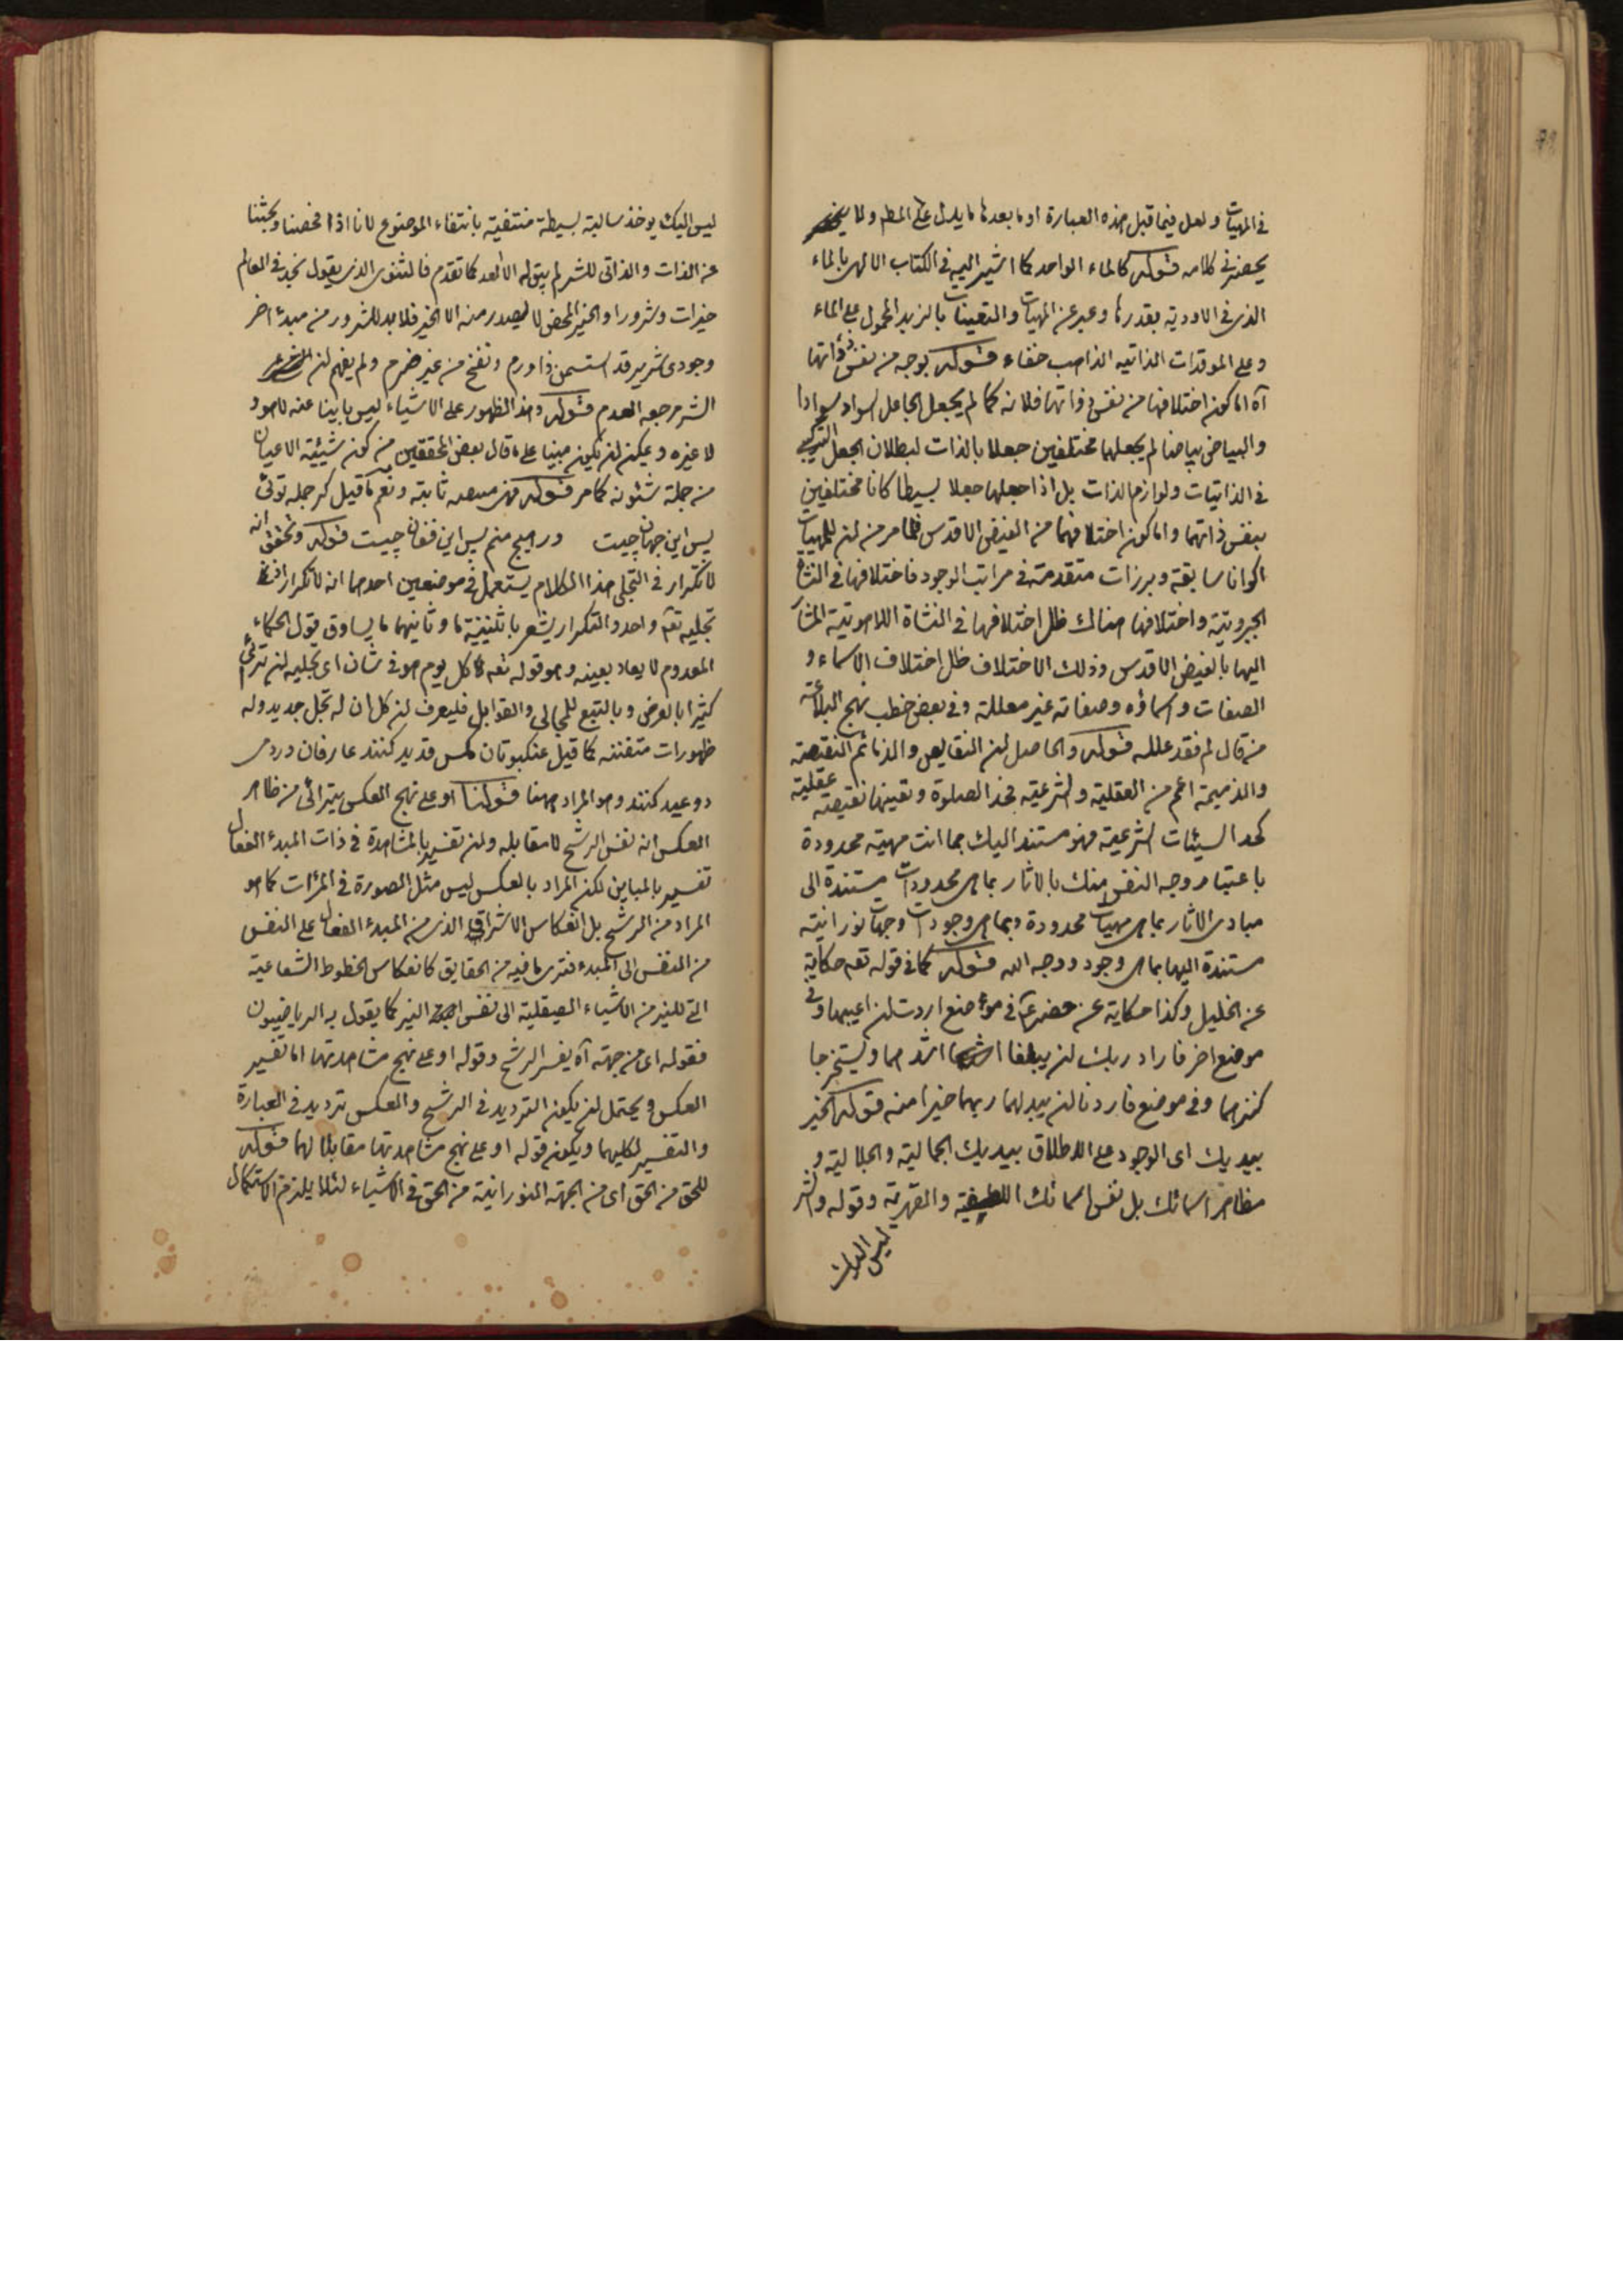 في المهيات ولعل فيما قبل هذه العبارة او ما بعدها ما يدل على المط ولا
يحضرني كلامه قوله كالماء الواحد كما اشير اليه في الكتاب الالهي بالماء
الذي في الاودية بقدرها وعبر عن المهيات والتعينات بالزبد المحمول على الماء
وعلى الموقدات الذاتيه الذاهب جفاء قوله بوجه من نفس ذاتها
آه اما كون اختلافها من نفس ذواتها فلانه كما لم يجعل الجاعل السواد سوادا
والبياض بياضا لم يجعلهما مختلفين جعلا بالذات لبطلان الجعل التركيبي
في الذاتيات ولوازم الذات بل اذا جعلهما جعلا بسيطا كانا مختلفين
بنفس ذاتهما واما كون اختلافهما من الفيض الاقدس فلما مر من ان للمهيات
اكوانا سابقة وبرزات متقدمة في مراتب الوجود فاختلافها في النشأة
الجبروتية واختلافها هنالك ظل اختلافها في النشاة اللاهوتية المشار
اليها بالفيض الاقدس وذلك الاختلاف ظل اختلاف الاسماء و
الصفات واسماؤه وصفاته غير معللة وفي بعض خطب نهج البلاغة
من قال لم فقد علله قوله والحاصل ان النقايص والذمائم النقيصة
والذميمة اعم من العقلية والشرعية فحد الصلوة وتعينها نقيصة عقلية
كحد السيئات الشرعية فهو مستند اليك بما انت مهية محدودة
باعتبار وجه النفس منك بالاثار بما هي محدودات مستندة الى
مبادي الاثار بما هي مهيات محدودة وبما هي وجودات وجهات نورانية
مستندة اليها بما هي وجود ووجه الله قوله كما في قوله تعه حكاية
عن الخليل وكذا حكاية عن خضر ع في موضع اردت ان اعيبها وفي
موضع اخر فاراد ربك ان يبلغا اشدهما ويستخرجا
كنزهما وفي موضع فاردنا ان يبدلهما ربهما خيرا منه قوله الخير
بيديك اى الوجود على الاطلاق بيديك الجمالية والجلالية و
مظاهر اسمائك بل نفس اسمائك اللطيفية والقهرية وقوله والشر
ليس اليك
ليس اليك يوخذ سالبة بسيطة منتفية بانتفاء الموضوع لانا اذا فحصنا وبحثنا
عن الذات والذاتى للشر لم يبق له الا العدم كما تقدم فالثنوى الذي يقول نجد في العالم
خيرات وشرورا والخير المحض لا يصدر منه الا الخير فلا بد للشرور من مبدء اخر
وجودى شرير قد استسمن ذا ورم ونفخ من غير ضرم ولم يفهم ان
الشر مرجعه العدم قوله وهذا الظهور على الاشياء ليس باينا عنه لا هو و
لا غيره ويمكن ان يكون مبنيا على ما قال بعض المحققين من كون شيئية الاعيان
من جملة شئونه كما مر قوله فهي بعد ثابتة ونعم ما قيل كر جمله توئى
پس اين جهان چيست ور هيچ منم پس اين فغان چيست قوله وتحقق انه
لا تكرار في التجلى هذا الكلام يستعمل في موضعين احدهما انه لا تكرار اذ
تجليه تعه واحد والتكرار يشعر باثنينية ما وثانيهما ما يساوق قول الحكماء
المعدوم لا يعاد بعينه وهو قوله تعه كل يوم هو في شان اى تجليه ان ترئى
كثيرا بالعرض وبالتبع للمجالى والقوابل فليعرف ان كل ان له تجل جديد وله
ظهورات متفننه كما قيل عنكبوتان مگس قديد كنند عارفان در دمى
دو عيد كنند وهو المراد ههنا قولنا او على نهج العكس يترائى من ظاهر
العكس انه نفس الرشح لا مقابله وان تفسيره بالمشاهدة في ذات المبدء الفعال
تفسير بالمباين لكن المراد بالعكس ليس مثل الصورة في المرآت كما هو
المراد من الرشح بل انعكاس الاشراق الذي من المبدء الفعال على النفس
من النفس الى المبدء فترى ما فيه من الحقايق كانعكاس الخطوط الشعاعية
التي للنير من الاشياء الصيقلية الى نفس النير كما يقول به الرياضيون
فقوله اى من جهته آه يفسر الرشح وقوله او على نهج مشاهدتها اما تفسير
العكس ويحتمل ان يكون الترديد في الرشح والعكس ترديد في العبارة
والتفسير لكليهما ويكون قوله او على نهج مشاهدتها مقابلا لهما قوله
للحق من الحق اى من الجهة النورانية من الحق في الاشياء لئلا يلزم الاستكمال